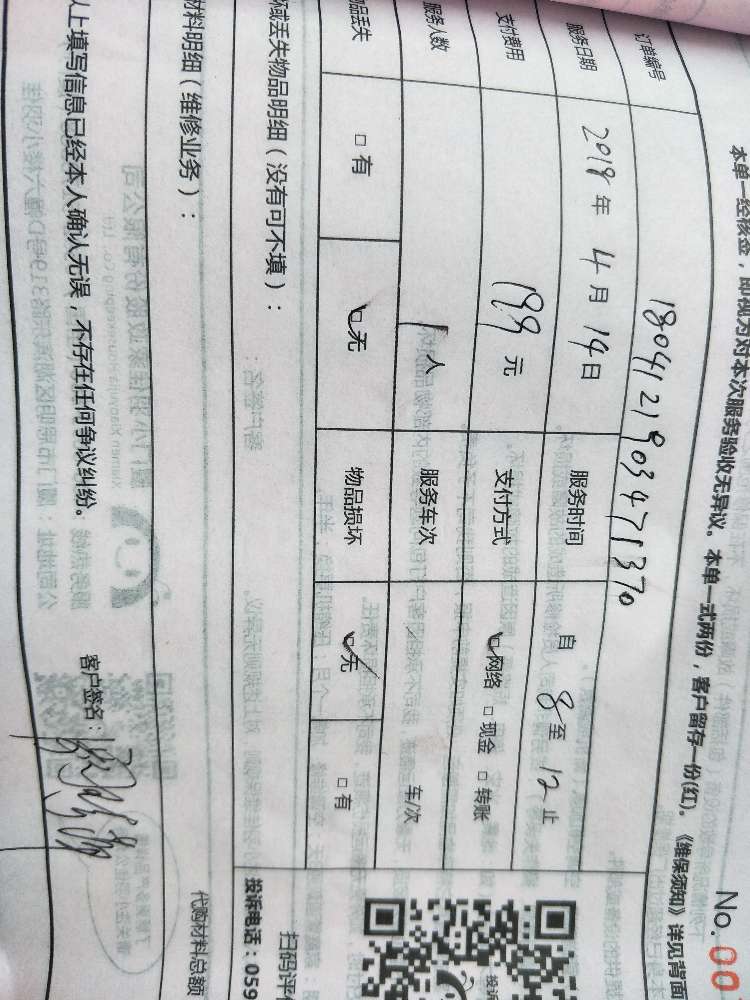 No. 00
本单一经核签，即视为对本次服务验收无异议。本单一式两份，客户留存一份(红)。《维保须知》详见背面
订单编号
服务日期 2018年4月14日 服务时间 自8至12止
支付费用 199元 支付方式 网络 □现金 □转账
服务人数 1人 服务车次 车/次
品丢失 □有 □无 物品损坏 □无 □有
坏或丢失物品明细（没有可不填）：
材料明细（维修业务）：
扫码评
投诉电话：059
代购材料总额
以上填写信息已经本人确认无误，不存在任何争议纠纷。
客户签名：